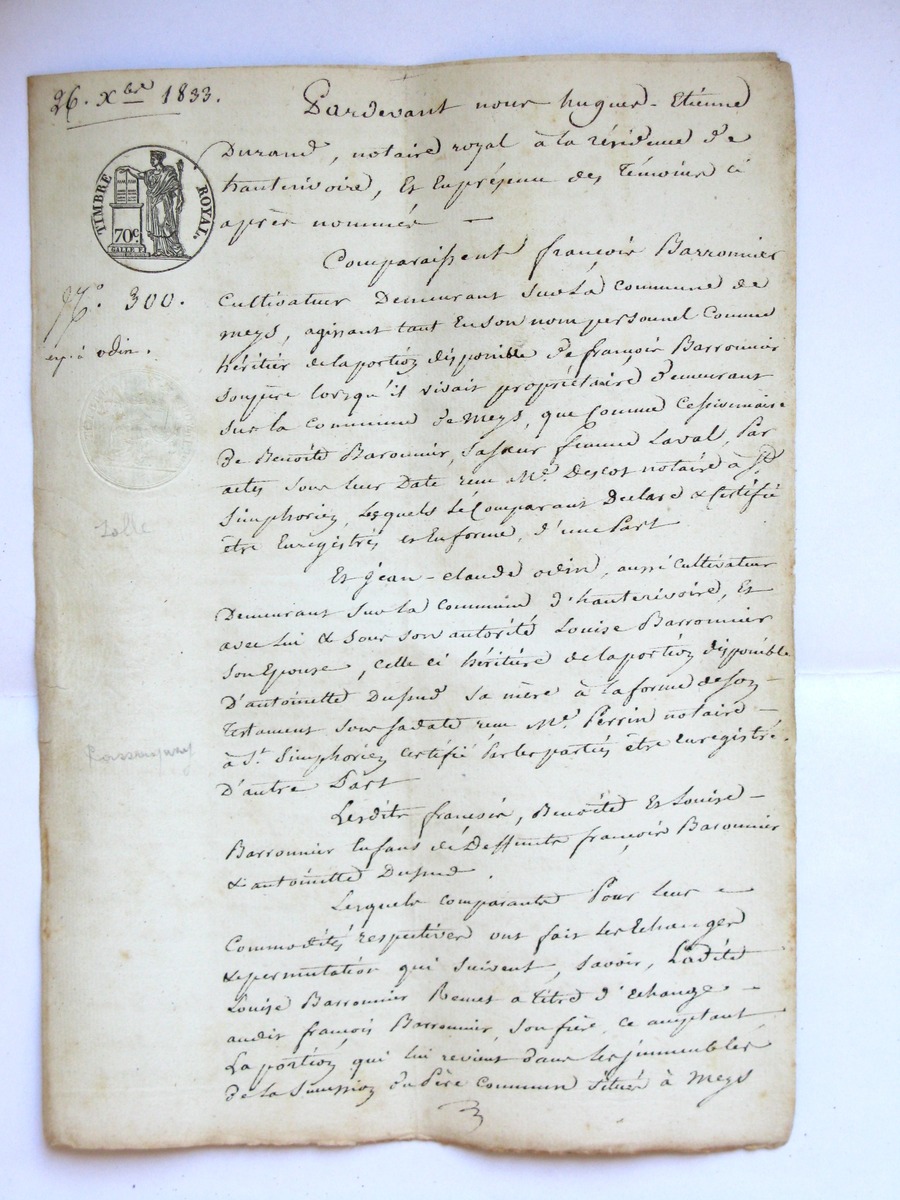 26. Xbre 1833.
Pardevant nous hugues-Etienne
Durand, notaire royal à la résidence de
hauterivoire, Et En présence des Témoins ci
après nommés —
TIMBRE ROYAL
70c
GALLE F.
Comparaissent françois Barronnier
Cultivateur Demeurant Sur La Commune de
meys, agissant tant En Son nom personnel Comme
héritier de la portion disponible de françois Barronnier
Son père lorsqu'il vivait propriétaire Demeurant
Sur la Commune de Meys, que Comme Cessionnaire
de Benoîte Baronnier, Sa Sœur femme Laval, Par
actes Sous leur Date reçu Me. Descos notaire à St.
Simphorien, Lesquels Le Comparant Declare & Certifie
être Enregistrés et En forme, d'une Part
N.° 300.
exp. à odin.
Et Jean-claude odin, aussi Cultivateur
Demeurant Sur La Commune d'hauterivoire, Et
avec Lui & Sous Son autorité Louise Barronnier
Son Epouse, celle ci héritière de la portion disponible
D'antoinette Dupud Sa mère à la forme de Son —
Testament Sous Sa date reçu Me. Perrin notaire —
à St. Simphorien Certifié Par les parties être Enregistré.
D'autre Part
Lesdits françois, Benoîte Et Louise —
Barronnier Enfans de Deffunts françois Baronnier
& antoinette Dupud.
Lesquels comparants Pour leurs —
Commodités respectives ont fait les Echanges
& permutation qui Suivent, Savoir, Ladite
Louise Barronnier Remet à titre d'échange —
audit françois Barronnier, Son frère, ce acceptant
La portion qui lui revient dans les immeubles
de la Succession du Père Commun Situés à Meys